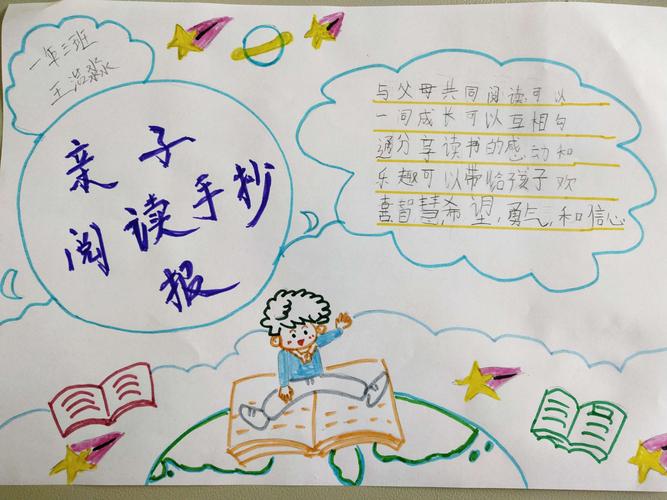 一年三班
王浩淼
亲子
阅读手抄
报
与父母共同阅读可以
一间成长可以互相句
通分享读书的感动和
乐趣可以带给孩子欢
喜智慧希望,勇气,和信心